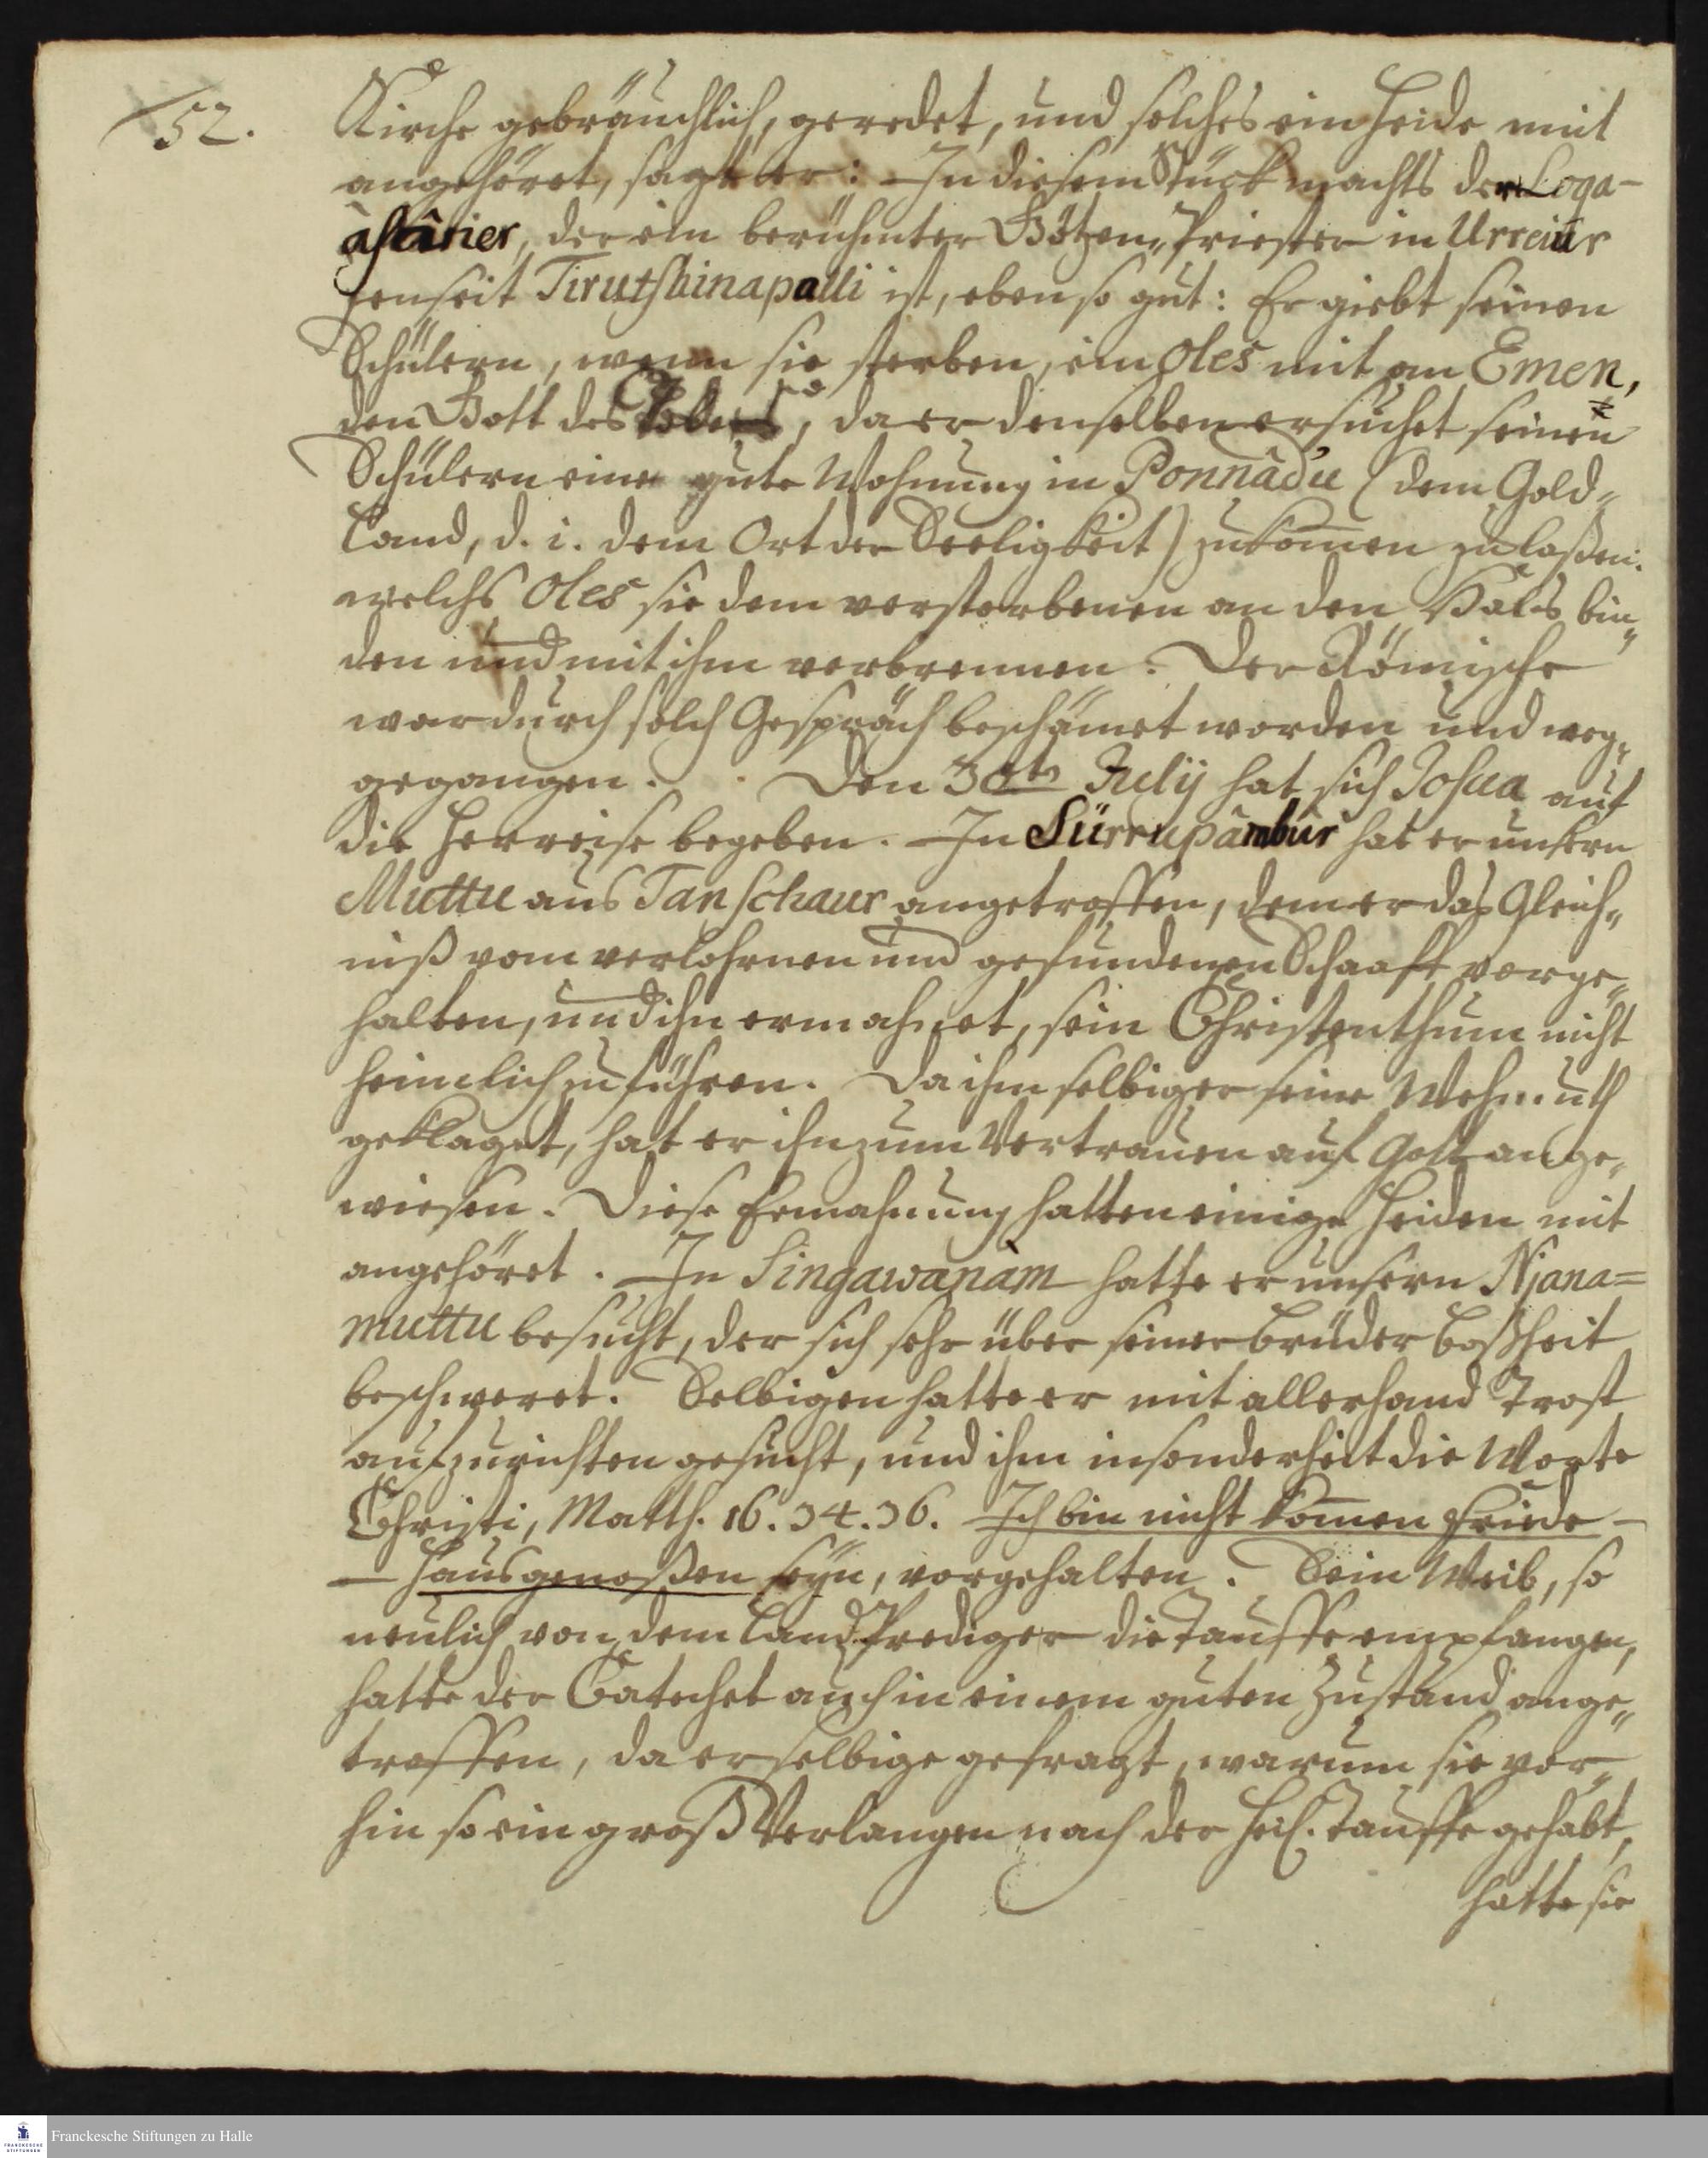 52.
Kirche gebräuchlich, geredet, und solches ein Heide mit
angehöret, sagt er: In diesem Stück machts der Loga-
âstârier, der ein berühmter Götzen„Priester in Urreiûr
jenseit Tirutshinapalli ist, eben so gut: Er giebt seinen
Schülern, wenn sie sterben, ein Oles mit an Emen,
den Gott des Todes, da er denselben ersuchet seinen
Schülern eine gute Wohnung in Ponnâdu (dem Gold„
Land, d. i. dem Ort der Seeligkeit) zukom̄en zulaßen:
welchs Oles sie dem verstorbenen an den Hals bin„
den und mit ihm verbrennen. Der Römische
war durch solch Gespräch beschämet worden und weg„
gegangen. Den 30ten Julij hat sich Josua auf
die Herreise begeben. In Sürrupâmbûr hat er unsern
Muttu aus Tanschaur angetroffen, dem er das Gleich„
niß vom verlohrnen und gefundenen Schaafe vorge„
halten, und ihn ermahnet, sein Christenthum nicht
heimlich zu führen. Da ihm selbiger seine Wehmuth
geklaget, hat er ihn zum Vertrauen auf Gott ange„
wiesen. Diese Ermahnung hatten einige Heiden mit
angehöret. In Singawanam hatte er unsern Njana=
muttu besucht, der sich sehr über seiner Brüder Boßheit
beschweret. Selbigen hatte er mit allerhand Trost
aufzurichten gesucht, und ihm insonderheit die Worte
Christi, Matth. 16. 34. 36. Ich bin nicht kom̄en Friede —
— Hausgenoßen seyn, vorgehalten. Sein Weib, so
neulich von dem Land Prediger die Tauffe empfangen,
hatte der Catechet auch in einem guten Zustand ange„
troffen, da er selbige gefragt, warum sie vor„
hin so ein groß Verlangen nach der heil. Tauffe gehabt,
hatte sie
Franckesche Stiftungen zu Halle
FRANCKESCHE
STIFTUNGEN